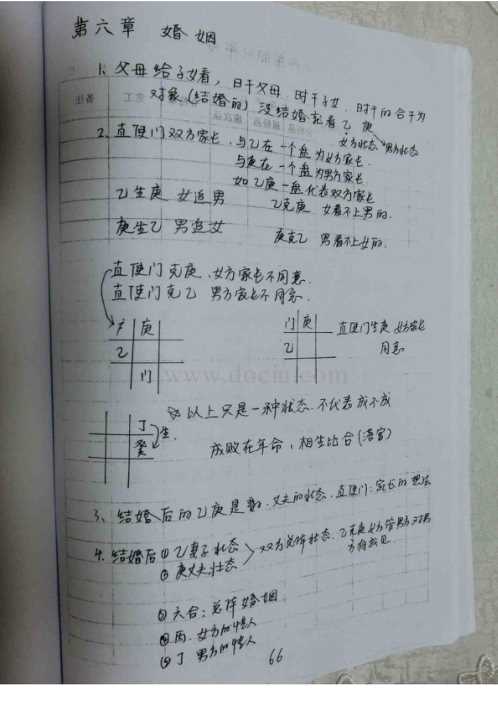 第六章 婚姻
1、父母给子女看，日干父母，时干子女，时干的合干为
对象(结婚的)没结婚就看乙 庚
女方状态 男方状态
2、直使门双方家长，与乙在一个盘为女方家长
与庚在一个盘为男方家长
如乙庚一盘代表双方家长
乙生庚 女追男
乙克庚 女看不上男的.
庚生乙 男追女
庚克乙 男看不上女的.
直使门克庚、女方家长不同意.
直使门克乙 男方家长不同意.
庚
乙
门
门 庚
乙
直使门生庚 女方家长
同意
www.docin.com
丁
癸
生.
以上只是一种状态.不代表成不成
成败在年命，相生比合(落宫)
3、结婚后的乙庚是 丈夫的状态.直使门:家长的想法
4、结婚后①乙妻子状态
②庚丈夫状态
双方总体状态.乙克庚女方管男方对男
方有意见
③六合:总体婚姻
④丙、女方的情人
⑤丁 男方的情人
66